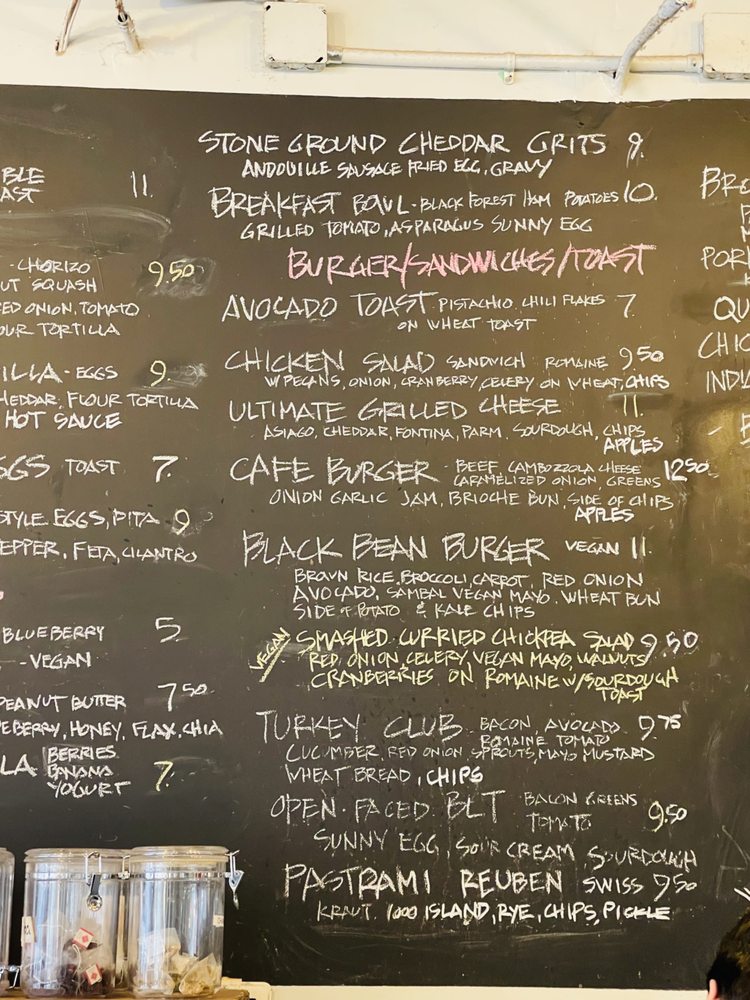 BLE
AST 11.
- CHORIZO 9.50
UT SQUASH
ED ONION, TOMATO
OUR TORTILLA
ILLA - EGGS 9.
HEDDAR, FLOUR TORTILLA
HOT SAUCE
GGS TOAST 7.
STYLE EGGS, PITA 9
EPPER, FETA, CILANTRO
BLUEBERRY 5
- VEGAN
PEANUT BUTTER 7 50
EBERRY, HONEY, FLAX, CHIA
LA BERRIES
BANANA 7.
YOGURT
STONE GROUND CHEDDAR GRITS 9.
ANDOUILLE SAUSAGE FRIED EGG, GRAVY
BREAKFAST BOWL - BLACK FOREST HAM POTATOES 10.
GRILLED TOMATO, ASPARAGUS SUNNY EGG
BURGER/SANDWICHES/TOAST
AVOCADO TOAST PISTACHIO CHILI FLAKES 7.
ON WHEAT TOAST
CHICKEN SALAD SANDWICH ROMAINE 9 50
W/PECANS, ONION, CRANBERRY, CELERY ON WHEAT, CHIPS
ULTIMATE GRILLED CHEESE 11.
ASIAGO, CHEDDAR, FONTINA, PARM, SOURDOUGH, CHIPS
APPLES
CAFE BURGER - BEEF, CAMBOZZOLA CHEESE 12 50
CARAMELIZED ONION, GREENS
ONION GARLIC JAM, BRIOCHE BUN, SIDE OF CHIPS
APPLES
BLACK BEAN BURGER VEGAN 11.
BROWN RICE, BROCCOLI, CARROT, RED ONION
AVOCADO, SAMBAL VEGAN MAYO. WHEAT BUN
SIDE OF POTATO & KALE CHIPS
VEGAN SMASHED CURRIED CHICKPEA SALAD 9 50
RED ONION, CELERY, VEGAN MAYO, WALNUTS
CRANBERRIES ON ROMAINE W/SOURDOUGH
TOAST
TURKEY CLUB BACON, AVOCADO 9.75
ROMAINE TOMATO
CUCUMBER, RED ONION, SPROUTS, MAYO MUSTARD
WHEAT BREAD, CHIPS
OPEN-FACED BLT BACON GREENS
TOMATO 9.50
SUNNY EGG, SOUR CREAM, SOURDOUGH
PASTRAMI REUBEN SWISS 9 50
KRAUT, 1000 ISLAND, RYE, CHIPS, PICKLE
BRE
POR
QU
CHIC
INDI